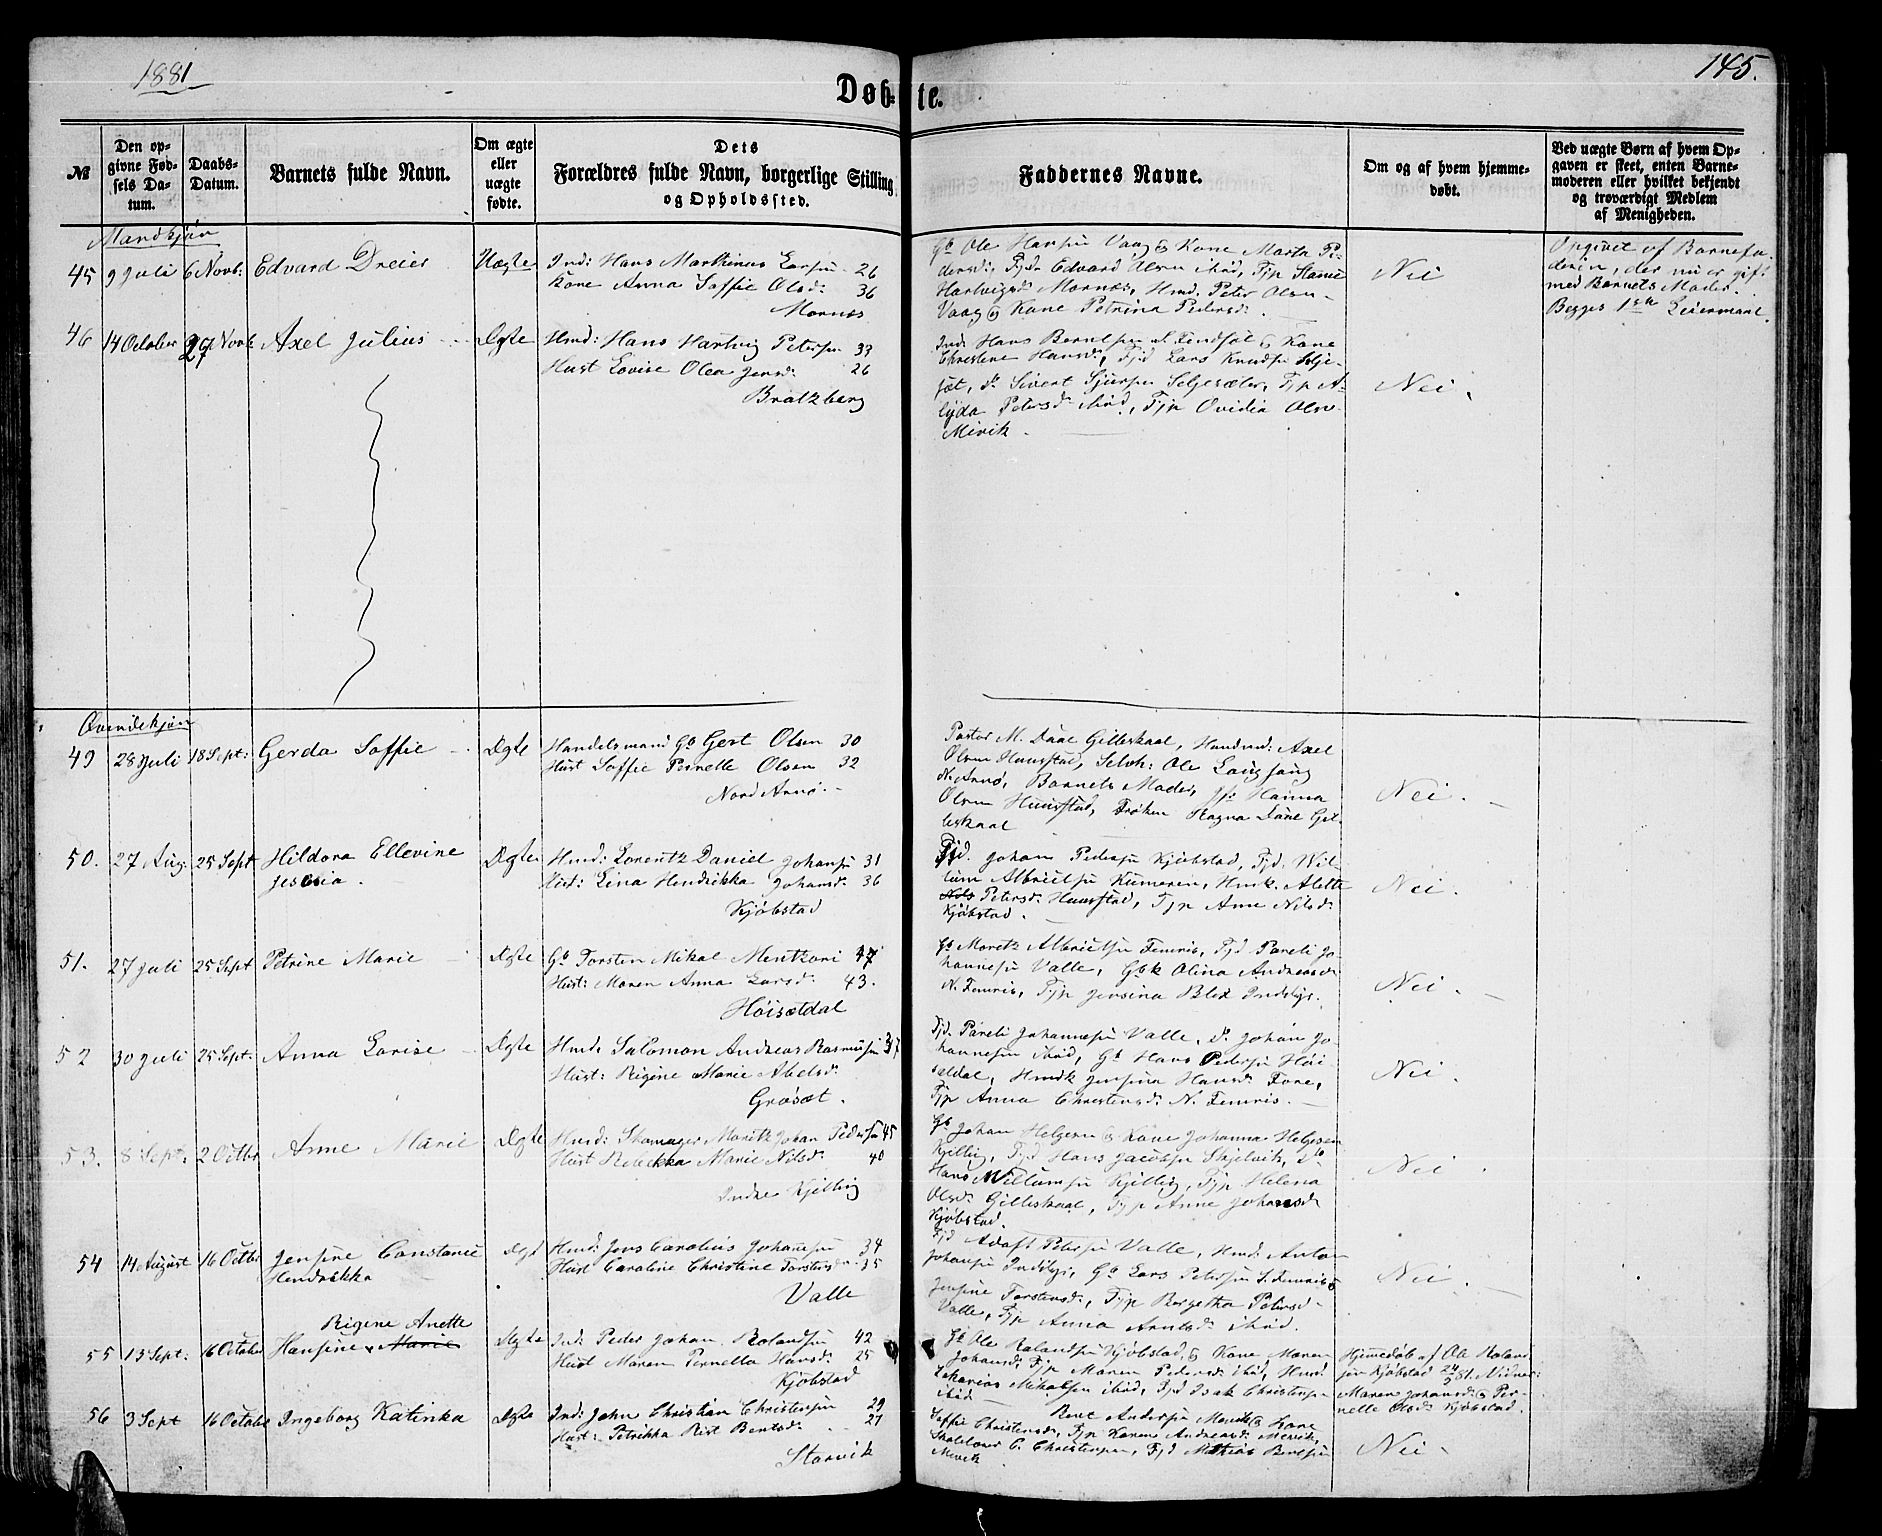 1881
145.
Døbte.
№
Den opgivne Fødsels Datum.
Daabs-Datum.
Barnets fulde Navn.
Om ægte eller uægte fødte.
Dets Forældres fulde Navn, borgerlige Stilling og Opholdssted.
Faddernes Navne.
Om og af hvem hjemmedøbt.
Ved uægte Børn af hvem Opgaven er skeet, enten Barnemoderen eller hvilket bekjendt og troværdigt Medlem af Menigheden.
Mandkjøn
45 9 Juli 6 Novb: Edvard Dreier Uægte Ind: Hans Marthinus Larsen 26
Kone Anna Soffie Olsd: 36
Mornæs
Gb Ole Hansen Vaag og Kone Marta Pe-
dersd:, Tjd. Edvard Olsen ibid, Tjp Hanne
Hartvigsd Mornæs, Hmd. Peter Olsen
Vaag og Kone Petrina Pedersd: .
Nei
Opgivet af Barnefa-
deren, der nu er gift
med Barnets Moder.
Begges 1ste Leiermaal.
46 14 October 27 Novb Axel Julius Ægte Hmd: Hans Hartvig Petersen 33
Hust Lovise Olea Jensd: 26
Bratzberg
Ind: Hans Berntsen S. Fendsæt og Kone
Christene Hansd:, Tjd Lars Knudsen Selje-
sæt, do Sivert Sjursen Seljesæter, Tjp A-
lyda Petersd ibid, Tjp Ovidia Olsd
Mevik.
Nei.
Qvindekjøn
49 28 Juli 18 Sept: Gerda Soffie Ægte Handelsmand Gb Gert Olsen 30
Hust Soffie Pernelle Olsen 32
Nord Arnø.
Pastor M. Daae Gilleskaal, Handmd: Axel
Olsen Huusstad, Selvh: Ole Laugsaug
N. Arnø, Barnets Moder, Hanna
Olsen Huusstad, Frøken Ragna Daae Gil-
leskaal
Nei.
50. 27 Aug. 25 Sept Hildora Ellevine
Jessia. Ægte Hmd: Lorentz Daniel Johansen 31
Hust: Lina Hendrikka Johansd: 36
Kjøbstad
Tjd. Johan Pedersen Kjøbstad, Tjd. Wil-
lum Albrictsen Kumoren, Hmk. Alette
Petersd: Huusstad, Tjp Ane Nilsd:
Kjøbstad.
Nei.
51. 27 Juli 25 Sept Petrine Marie Ægte Gb Torsten Mikal Mentzoni 47
Hust: Maren Anna Larsd: 43.
Høisætdal
Gb Moretz Albrictsen Femris, Tjd Pareli Jo-
hannesen Valle, Gbk Olina Andreasd
N. Femris, Tjp Jensina Blix Indbyr.
Nei.
52 30 Juli 25 Sept: Anna Lovise Ægte Hmd. Salomon Andreas Rasmussen 37
Hust: Rigine Marie Abelsd:
Grøsæt.
Tjd. Pareli Johannesen Valle, do Johan Jo-
hannesen ibid, Gb Hans Pedersen Høi-
sætdal, Hmdk Jensina Hansd: Fore,
Tjp Anna Christensd: N. Femris.
Nei.
53. 8 Sept: 2 Octbr Anne Marie Ægte Hmd: Skomager Moritz Johan Pedersen 45
Hust Rebekka Marie Nilsd: 40
Indre Kjelling
Gb Johan Helgesen og Kone Johanna Helgesen
Kjelling, Tjd Hans Jacobsen Skjelvik, do
Hans Willumsen Kjelling, Tjp Helena
Olsd: Gilleskaal, Tjp Anne Johansd
Kjøbstad.
Nei
54 14 August 16 Octbr Jensine Constanse
Hendrikka Ægte Hmd: Jens Carolius Johansen 34
Hust Caroline Christine Torstensd: 35
Valle
Tjd Adolf Petersen Valle, Hmd: Anton
Johansen Indbyr, Gb Lars Petersen S. Femris og
Jensine Torstensd:, Tjp Bergetha Petersd
Valle, Tjp Anna Arntsd: ibid.
Nei.
Rigine Anette
55 13 Sept: 16 October Hansine Marie Ægte Ind: Peder Johan Rolandsen 42
Hust Maren Pernella Hansd: 25
Kjøbstad
Gb Ole Rolandsen Kjøbstad, og Kone Maren
Johansd:, Tjp Maren Pedersd: ibid, Hmd
Zakarias Mikalsen ibid, Tjd Isak Christensen
ibid
Hjemmedøb af Ole Roland-
sen Kjøbstad 24/9 81. Vidner:
Maren Johansd: og Per-
nelle Olsd: Kjøbstad.
56 3 Sept 16 October Ingeborg Katinka Ægte Ind: John Christian Christensen 29
Hust: Petrikka Rist Bentsd: 27
Storvik
Bent Andersen Mevik og Kone
Soffie Christensd:, Tjp Karen Andreasd: Mevik,
Skolelærer C. Christensen, Tjd Mathias Bentsen
Mevik
Nei.